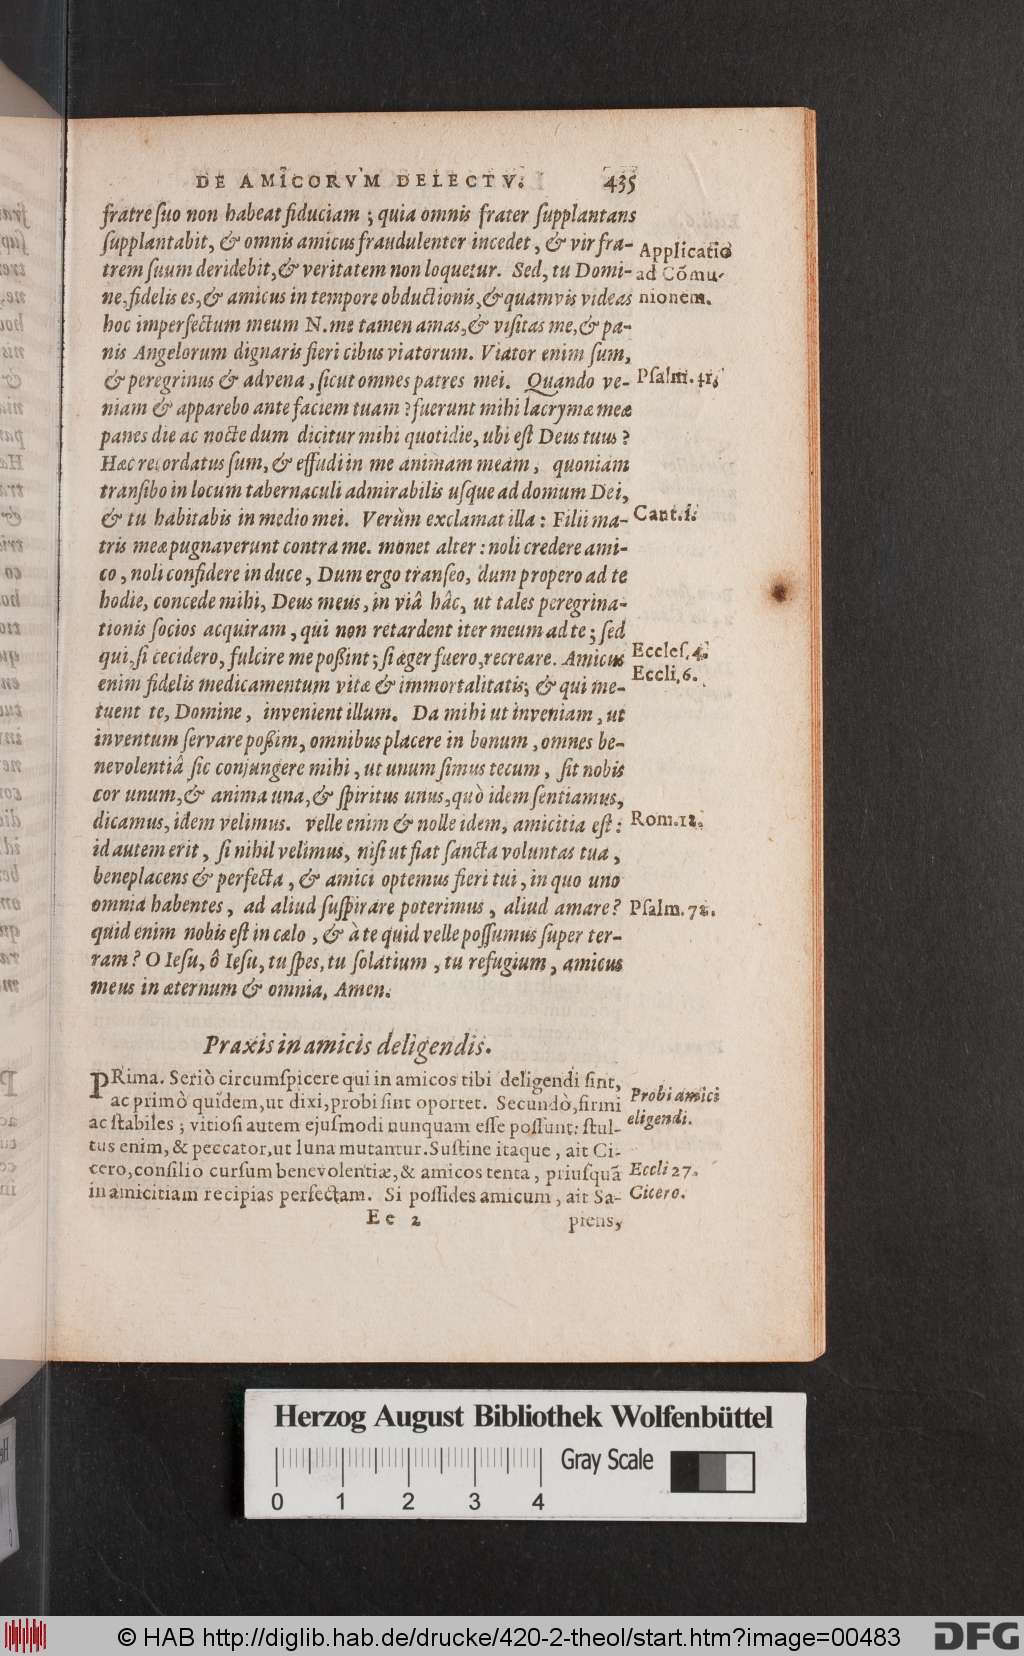 DE AMICORVM DELECTV. 435
fratre suo non habeat fiduciam; quia omnis frater supplantans
supplantabit, & omnis amicus fraudulenter incedet, & vir fra-
trem suum deridebit, & veritatem non loquetur. Sed, tu Domi-
ne, fidelis es, & amicus in tempore obductionis, & quamvis videas
hoc imperfectum meum N. me tamen amas, & visitas me, & pa-
nis Angelorum dignaris fieri cibus viatorum. Viator enim sum,
& peregrinus & advena, sicut omnes patres mei. Quando ve-
niam & apparebo ante faciem tuam? fuerunt mihi lacrymæ meæ
panes die ac nocte dum dicitur mihi quotidie, ubi est Deus tuus?
Hæc recordatus sum, & effudi in me animam meam, quoniam
transibo in locum tabernaculi admirabilis usque ad domum Dei,
& tu habitabis in medio mei. Verùm exclamat illa: Filii ma-
tris meæ pugnaverunt contra me. monet alter: noli credere ami-
co, noli confidere in duce, Dum ergo transeo, dum propero ad te
hodie, concede mihi, Deus meus, in viâ hâc, ut tales peregrina-
tionis socios acquiram, qui non retardent iter meum ad te; sed
qui, si cecidero, fulcire me possint; si æger fuero, recreare. Amicus
enim fidelis medicamentum vitæ & immortalitatis; & qui me-
tuent te, Domine, invenient illum. Da mihi ut inveniam, ut
inventum servare possim, omnibus placere in bonum, omnes be-
nevolentiâ sic conjungere mihi, ut unum simus tecum, sit nobis
cor unum, & anima una, & spiritus unus, quò idem sentiamus,
dicamus, idem velimus. velle enim & nolle idem, amicitia est:
id autem erit, si nihil velimus, nisi ut fiat sancta voluntas tua,
beneplacens & perfecta, & amici optemus fieri tui, in quo uno
omnia habentes, ad aliud suspirare poterimus, aliud amare?
quid enim nobis est in cælo, & à te quid velle possumus super ter-
ram? O Iesu, ô Iesu, tu spes, tu solatium, tu refugium, amicus
meus in æternum & omnia, Amen.
Applicatio
ad Cõmu-
nionem.
Psalm. 41.
Cant. 1.
Eccles. 4.
Eccli. 6.
Rom. 12.
Psalm. 72.
Praxis in amicis deligendis.
PRima. Seriò circumspicere qui in amicos tibi deligendi sint,
ac primò quidem, ut dixi, probi sint oportet. Secundò, firmi
ac stabiles; vitiosi autem ejusmodi nunquam esse possunt: stul-
tus enim, & peccator, ut luna mutantur. Sustine itaque, ait Ci-
cero, consilio cursum benevolentiæ, & amicos tenta, priusquã
in amicitiam recipias perfectam. Si possides amicum, ait Sa-
Probi amici
eligendi.
Eccli 27.
Cicero.
Ee 2 piens,
Herzog August Bibliothek Wolfenbüttel
Gray Scale
0 1 2 3 4
© HAB http://diglib.hab.de/drucke/420-2-theol/start.htm?image=00483
DFG